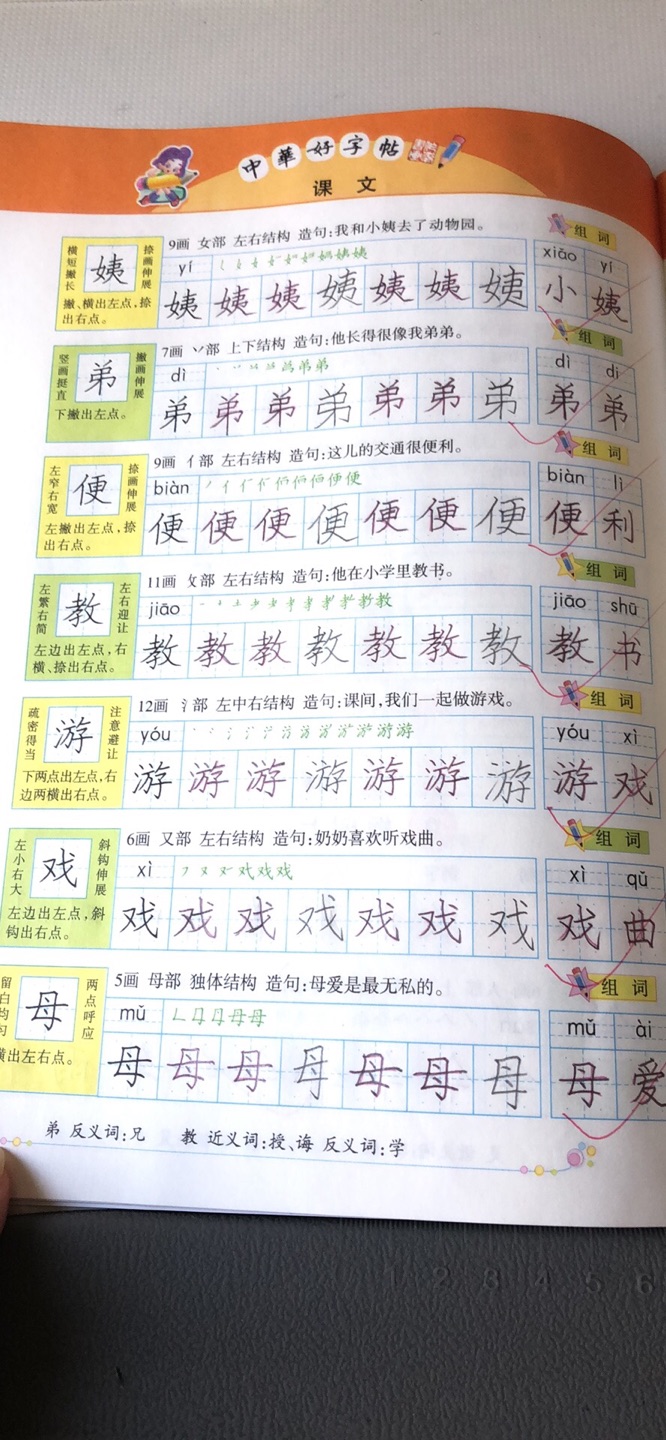 中華好字帖
课 文
9画 女部 左右结构 造句:我和小姨去了动物园。
组 词
横短撇长
姨
捺画伸展
撇、横出左点,捺出右点。
yí
xiǎo yí
姨 姨 姨 姨 姨 姨 姨 小 姨
7画 丷部 上下结构 造句:他长得很像我弟弟。
组 词
竖画挺直
弟
撇画伸展
下撇出左点。
dì
dì di
弟 弟 弟 弟 弟 弟 弟 弟 弟
9画 亻部 左右结构 造句:这儿的交通很便利。
组 词
左窄右宽
便
捺画伸展
左撇出左点,捺出右点。
biàn
biàn lì
便 便 便 便 便 便 便 便 利
11画 攵部 左右结构 造句:他在小学里教书。
组 词
左繁右简
教
左右迎让
左边出左点,右横、捺出右点。
jiāo
jiāo shū
教 教 教 教 教 教 教 教 书
12画 氵部 左中右结构 造句:课间,我们一起做游戏。
组 词
疏密得当
游
注意避让
下两点出左点,右边两横出右点。
yóu
yóu xì
游 游 游 游 游 游 游 游 戏
6画 又部 左右结构 造句:奶奶喜欢听戏曲。
组 词
左小右大
戏
斜钩伸展
左边出左点,斜钩出右点。
xì
xì qǔ
戏 戏 戏 戏 戏 戏 戏 戏 曲
5画 母部 独体结构 造句:母爱是最无私的。
组 词
留白均匀
母
两点呼应
横出左右点。
mǔ
mǔ ài
母 母 母 母 母 母 母 母 爱
弟 反义词:兄 教 近义词:授、诲 反义词:学
1 2 3 4 5 6